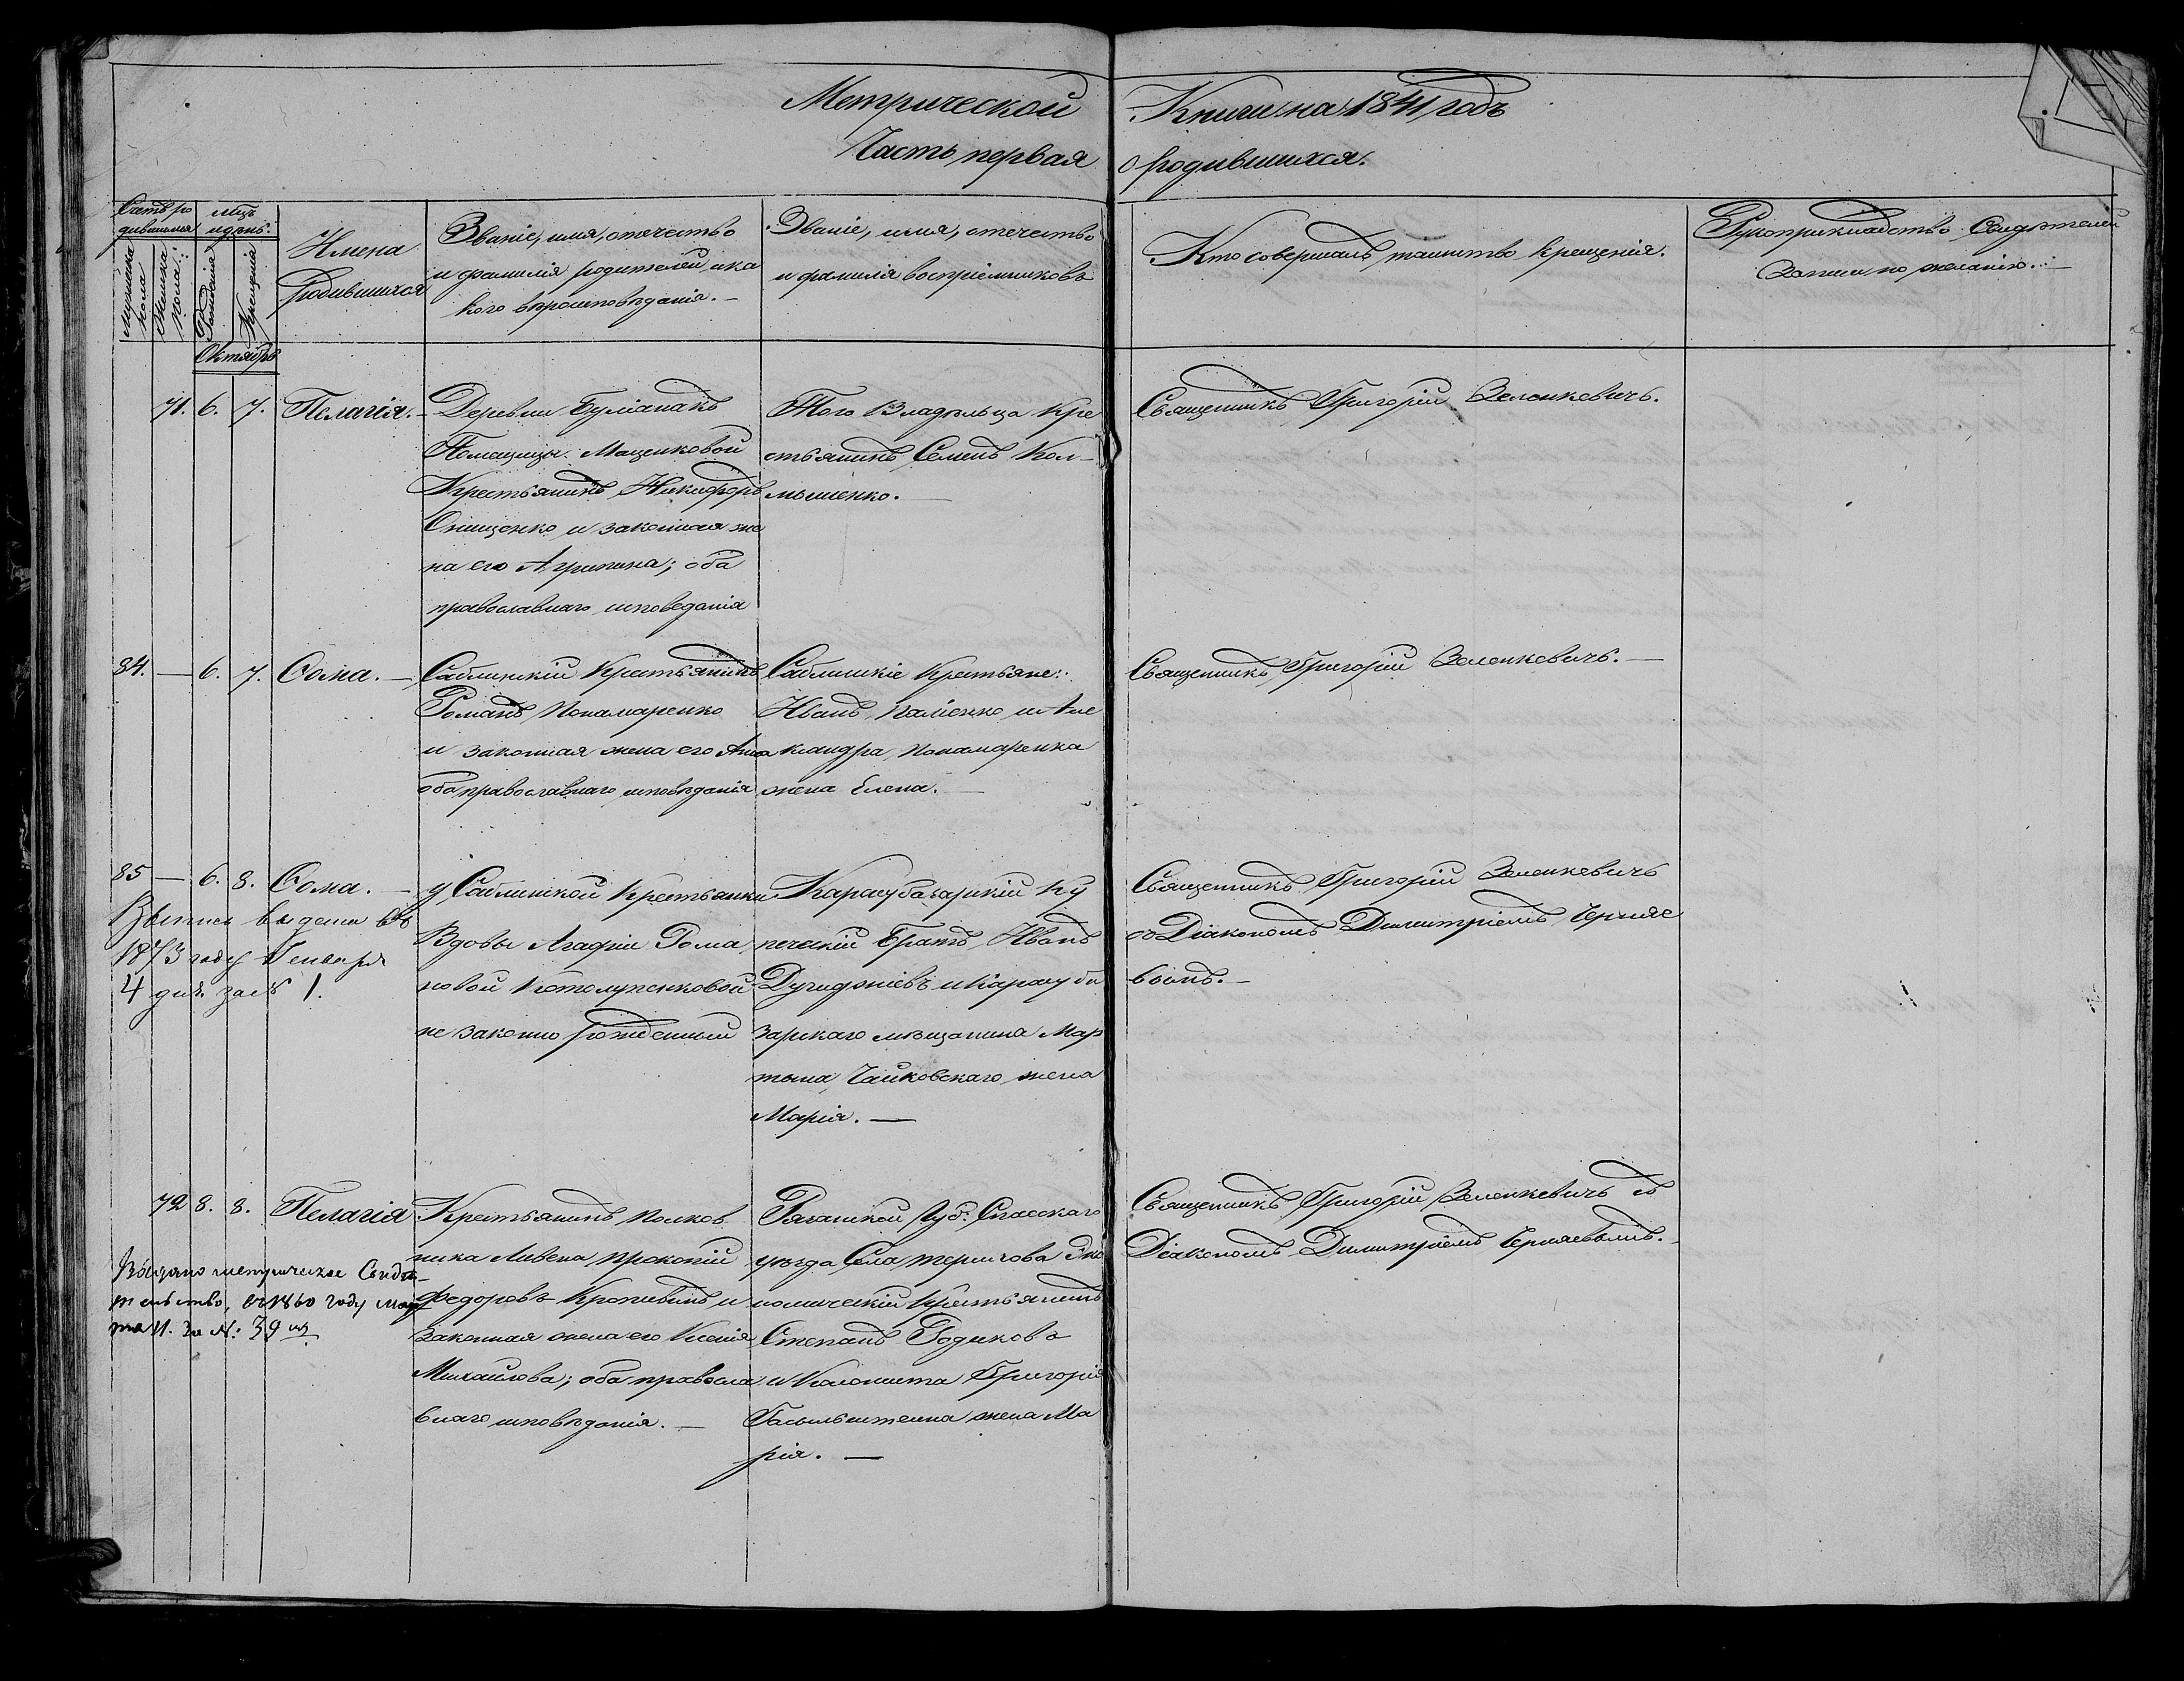 Метрической Книги на 1841 годъ
Часть первая о родившихся.
Счетъ родившихся
Мужеска пола
Женска пола
мѣц. и день.
Рожденія
Крещенія
Имена
Родившихся
Званіе, имя, отечество
и фамилія родителей, и ка
кого вѣроисповѣданія. —
Званіе, имя, отечество
и фамилія воспріемниковъ
Кто совершалъ таинство крещенія.
Рукоприкладство Свидѣтелей
Записи по желанію. —
Октябрь
71. 6. 7. Пелагія. —
Деревни
Помещицы Маценковой
Крестьянинъ Никифоръ
Онищенко и законная же
на его Агрипина; оба
православнаго исповеданія
Того Владѣльца Кре
стьянинъ Семенъ Кол-
мыченко. —
Священникъ Григорій Зеленкевичъ.
84. — 6. 7. Ѳома. —
Саблинскій Крестьянинъ
Романъ Понамаренко
и законная жена его Анна
оба православнаго исповѣданія
Саблинскіе Крестьяне:
Иванъ и Але
ксандра Понамаренка
жена Елена. —
Священникъ Григорій Зеленкевичъ. —
85 — 6. 8. Ѳома. —
у Саблинской Крестьянки
Вдовы Агафіи Рома
новой
не законно рожденный
Карасубазарскій Ку
печескій Братъ Иванъ
и Карасуба
зарскаго мѣщанина Мар
тына Чайковскаго жена
Марія. —
Священникъ Григорій Зеленкевичъ
съ Діакономъ Димитріемъ Черняе
вымъ. —
Выпись выдана въ
1873 году Генваря
4 дня за № 1.
72 8. 8. Пелагія
Крестьянинъ Полков
ника Ливена Прокопій
Федоровъ Кропивинъ и
законная жена его Ксенія
Михайлова; оба правосла
внаго исповѣданія. —
Рязанской Губ. Спасскаго
уѣзда Села Терихова Эко
номическій Крестьянинъ
Степанъ Родиковъ
и Колониста Григорія
жена Ма
рія. —
Священникъ Григорій Зеленкевичъ съ
Діакономъ Димитріемъ Черняевымъ. —
Выдано метрическое Свидѣ-
тельство, въ 1860 году Мар
та 11. За №: 39мъ